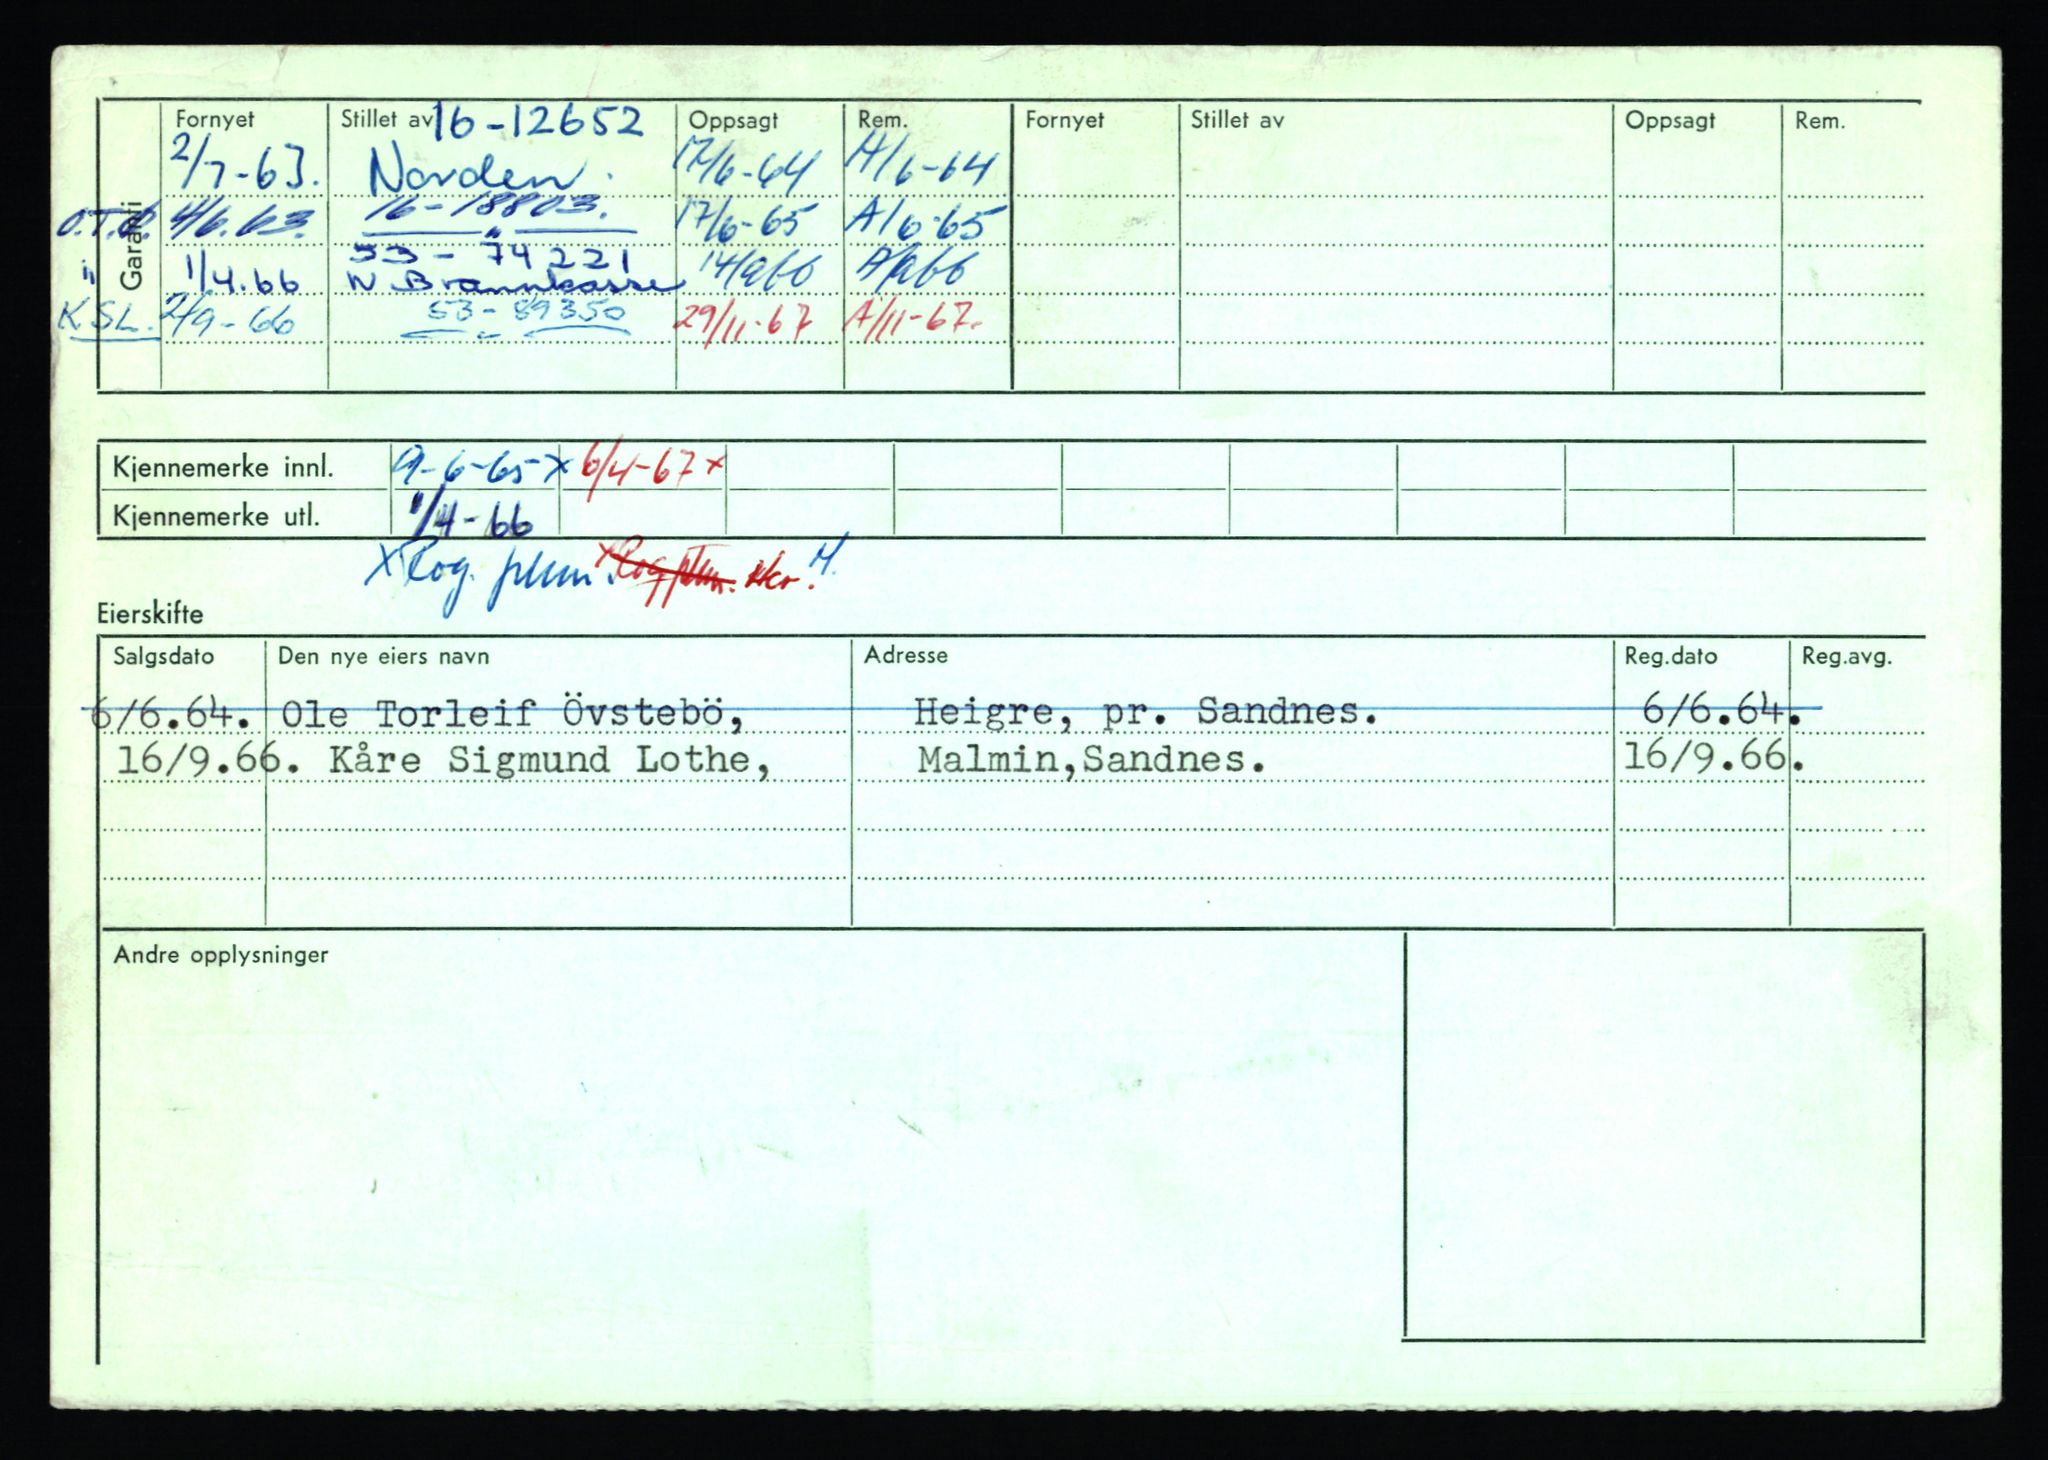 Garanti
Fornyet Stillet av 16-12652 Oppsagt Rem. Fornyet Stillet av Oppsagt Rem.
2/7-63. Norden. 17/6-64 A/6-64
O.T.Ö. 4/6.63. 16-18803. 17/6-65 A/6-65
" 1/4.66 53-74221 14/9 66 A/9 66
N. Brannkasse
K.S.L. 2/9-66 53-89350 29/11-67 A/11-67.
Kjennemerke innl. 9-6-65-x 6/4-67 x
Kjennemerke utl. 1/4-66
x Rog. plum. x Rog plum. H.
Eierskifte
Salgsdato Den nye eiers navn Adresse Reg.dato Reg.avg.
6/6.64. Ole Torleif Övstebö, Heigre, pr. Sandnes. 6/6.64.
16/9.66. Kåre Sigmund Lothe, Malmin,Sandnes. 16/9.66.
Andre opplysninger